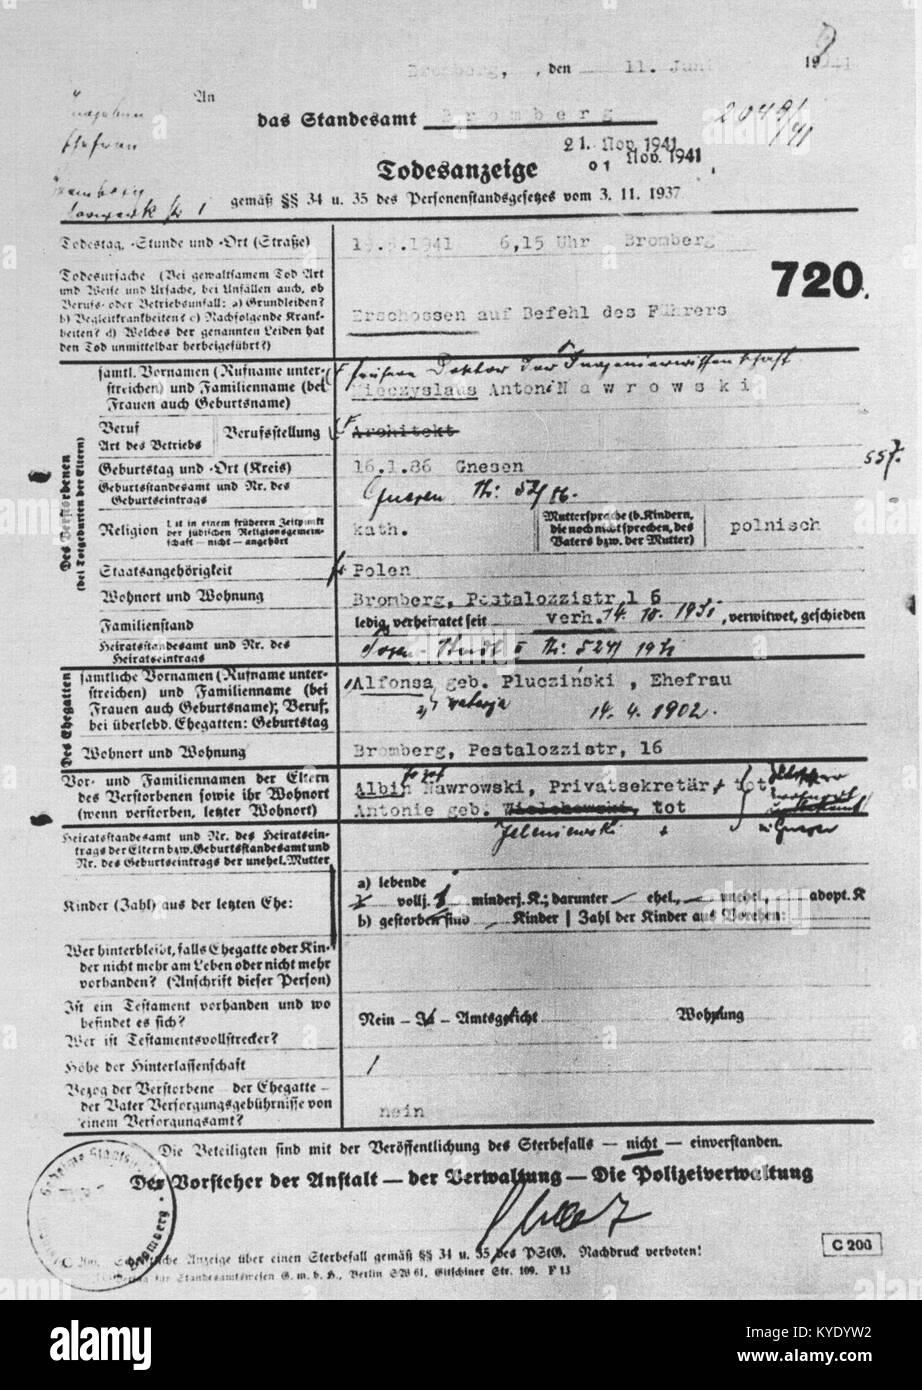 Bromberg, , den 11. Juni 1941
An
das Standesamt Bromberg
2049/41
21. Nov. 1941
01 Nov. 1941
Ehefrau
Bromberg
Todesanzeige
gemäß §§ 34 u. 35 des Personenstandsgesetzes vom 3. 11. 1937
Todestag, -Stunde und -Ort (Straße) 19.5.1941 6,15 Uhr Bromberg
720.
Todesursache (Bei gewaltsamem Tod Art
und Weise und Ursache, bei Unfällen auch, ob
Berufs- oder Betriebsunfall: a) Grundleiden?
b) Begleitkrankheiten? c) Nachfolgende Krank-
heiten? d) Welches der genannten Leiden hat
den Tod unmittelbar herbeigeführt?)
Erschossen auf Befehl des Führers
Des Verstorbenen
(bei Totgeburten der Eltern)
Doktor der Ingenieurwissenschaft
sämtl. Vornamen (Rufname unter-
streichen) und Familienname (bei
Frauen auch Geburtsname)
Mieczyslaus Anton Nawrowski
Beruf
Art des Betriebs
Berufsstellung
Architekt
Geburtstag und -Ort (Kreis) 16.1.86 Gnesen
557.
Geburtsstandesamt und Nr. des
Geburtseintrags
Gnesen Nr. 52/86.
Religion
Ist in einem früheren Zeitpunkt
der jüdischen Religionsgemein-
schaft — nicht — angehört
kath.
Muttersprache (b. Kindern,
die noch nicht sprechen, des
Vaters bzw. der Mutter)
polnisch
Staatsangehörigkeit Polen
Wohnort und Wohnung Bromberg, Pestalozzistr. 16
Familienstand ledig, verheiratet seit verh. 14. 10. 1931, verwitwet, geschieden
Heiratsstandesamt und Nr. des
Heiratseintrags
Posen-Stadt Nr. 524/1931
Des Ehegatten
sämtliche Vornamen (Rufname unter-
streichen) und Familienname (bei
Frauen auch Geburtsname); Beruf,
bei überlebd. Ehegatten: Geburtstag
Alfonsa geb. Pluczinski , Ehefrau
14. 4. 1902.
Wohnort und Wohnung Bromberg, Pestalozzistr, 16
Vor- und Familiennamen der Eltern
des Verstorbenen sowie ihr Wohnort
(wenn verstorben, letzter Wohnort)
Josef
Albin Nawrowski, Privatsekretär, tot
Antonie geb. Wielchowski, tot
Jeleniewski
Gnesen
Heiratsstandesamt und Nr. des Heiratsein-
trags der Eltern bzw. Geburtsstandesamt und
Nr. des Geburtseintrags der unehel. Mutter
Kinder (Zahl) aus der letzten Ehe:
a) lebende
vollj. minderj. K.; darunter ehel., unehel., adopt. K
b) gestorben sind Kinder | Zahl der Kinder aus Vorehen:
Wer hinterbleibt, falls Ehegatte oder Kin-
der nicht mehr am Leben oder nicht mehr
vorhanden? (Anschrift dieser Person)
Ist ein Testament vorhanden und wo
befindet es sich?
Wer ist Testamentsvollstrecker?
Nein — Ja — Amtsgericht Wohnung
Höhe der Hinterlassenschaft
Bezog der Verstorbene — der Ehegatte —
der Vater Versorgungsgebührnisse von
einem Versorgungsamt?
nein
Die Beteiligten sind mit der Veröffentlichung des Sterbefalls — nicht — einverstanden.
Der Vorsteher der Anstalt — der Verwaltung — Die Polizeiverwaltung
Geheime Staats
Bromberg
C 206
Anzeige über einen Sterbefall gemäß §§ 34 u. 35 des PStG. Nachdruck verboten!
für Standesamtswesen G. m. b. H., Berlin SW 61, Gitschiner Str. 109. F 13
alamy
Image ID: KYDYW2
www.alamy.com